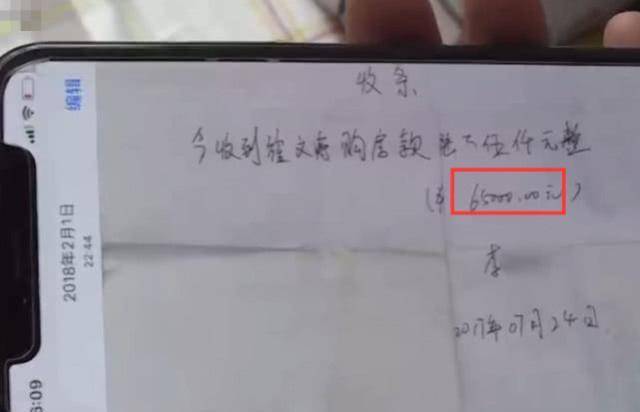 编辑
2018年2月1日
22:44
6:09
收条
今收到 文 购房款 伍仟元整
(  65000.00元)
李
2017年07月24日